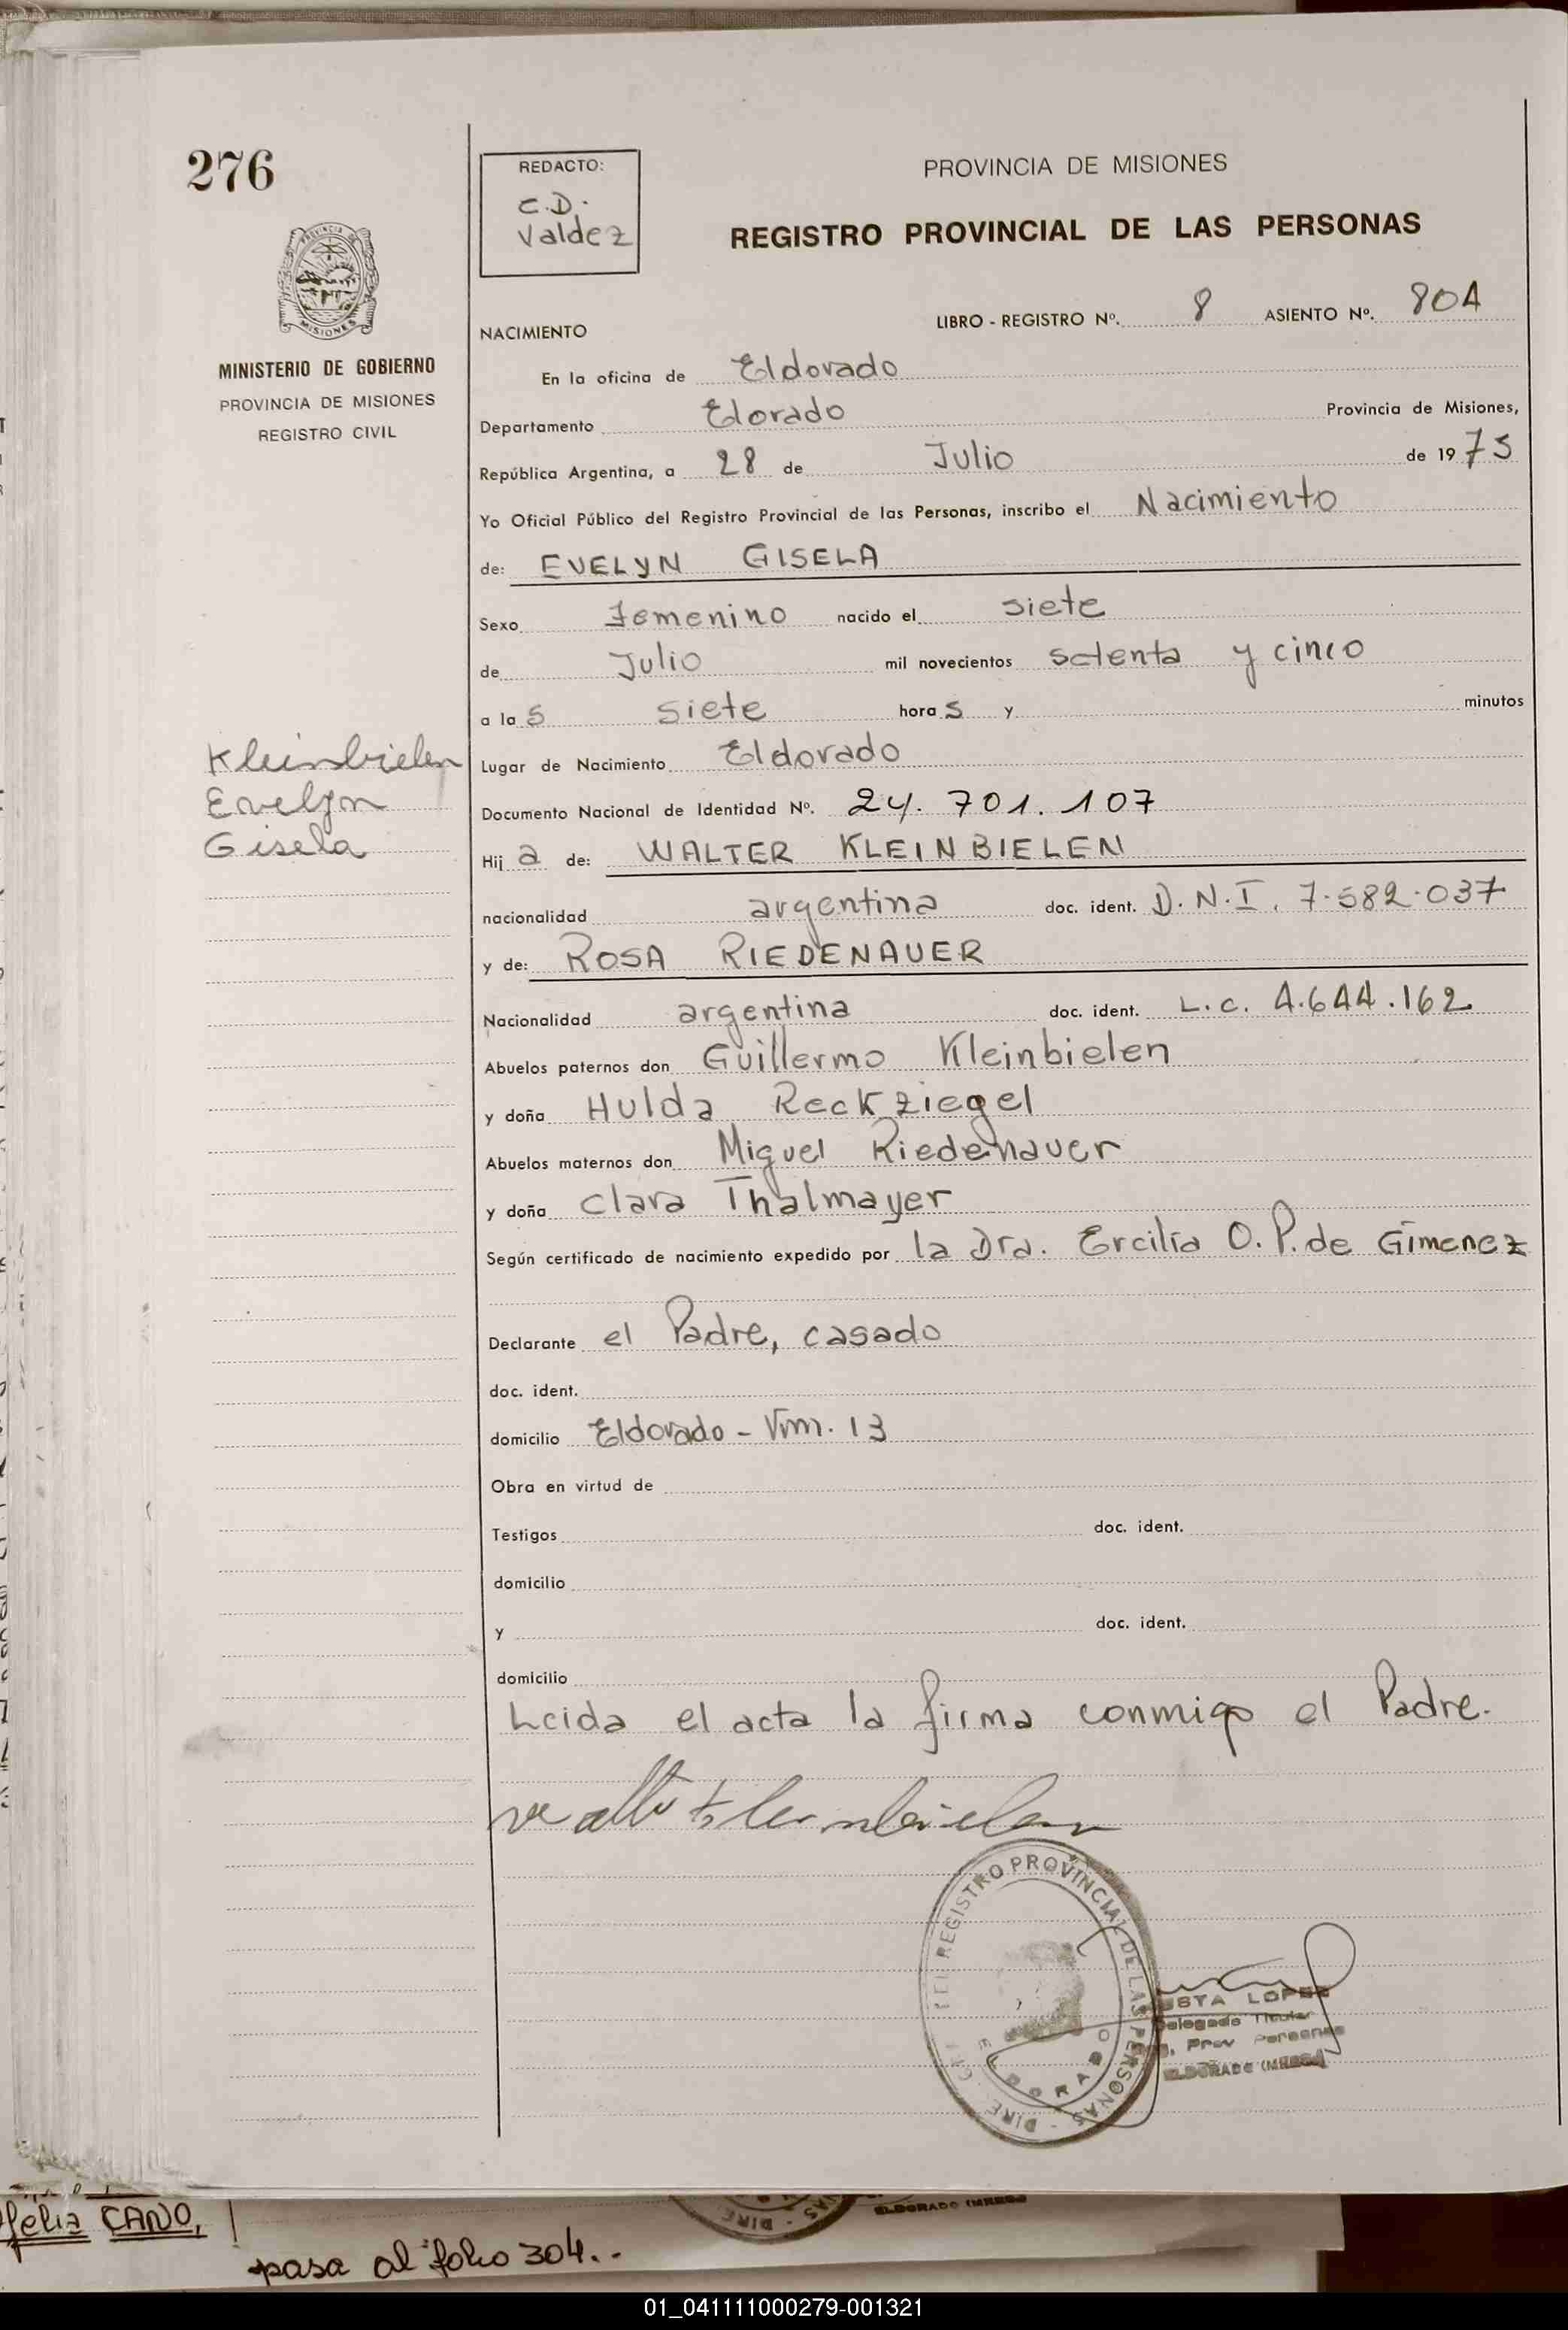 276
REDACTO:
C.D.
Valdez
PROVINCIA DE MISIONES
REGISTRO PROVINCIAL DE LAS PERSONAS
PROVINCIA DE
MISIONES
MINISTERIO DE GOBIERNO
PROVINCIA DE MISIONES
REGISTRO CIVIL
NACIMIENTO LIBRO - REGISTRO Nº. 8 ASIENTO Nº. 804
En la oficina de Eldorado
Departamento Edorado Provincia de Misiones,
República Argentina, a 28 de Julio de 1975
Yo Oficial Público del Registro Provincial de las Personas, inscribo el Nacimiento
de: EVELYN GISELA
Sexo Femenino nacido el siete
de Julio mil novecientos setenta y cinco
a las siete horas y minutos
Kleinbielen
Evelyn
Gisela
Lugar de Nacimiento Eldorado
Documento Nacional de Identidad Nº. 24.701.107
Hija de: WALTER KLEINBIELEN
nacionalidad argentina doc. ident. D.N.I. 7.582.037
y de: ROSA RIEDENAUER
Nacionalidad argentina doc. ident. L.C. 4.644.162
Abuelos paternos don Guillermo Kleinbielen
y doña Hulda Reckziegel
Abuelos maternos don Miguel Riedenauer
y doña Clara Thalmayer
Según certificado de nacimiento expedido por la Dra. Ercilia O.P. de Gimenez
Declarante el Padre, casado
doc. ident.
domicilio Eldorado - Vm. 13
Obra en virtud de
Testigos doc. ident.
domicilio
y doc. ident.
domicilio
Leida el acta la firma conmigo el Padre.
REGISTRO PROVINCIAL DE LAS PERSONAS - DIRE
ELDORADO
LOPEZ
Delegado Titular
Prov Personas
ELDORADO
CANO,
pasa al folio 304..
ELDORADO
01_041111000279-001321